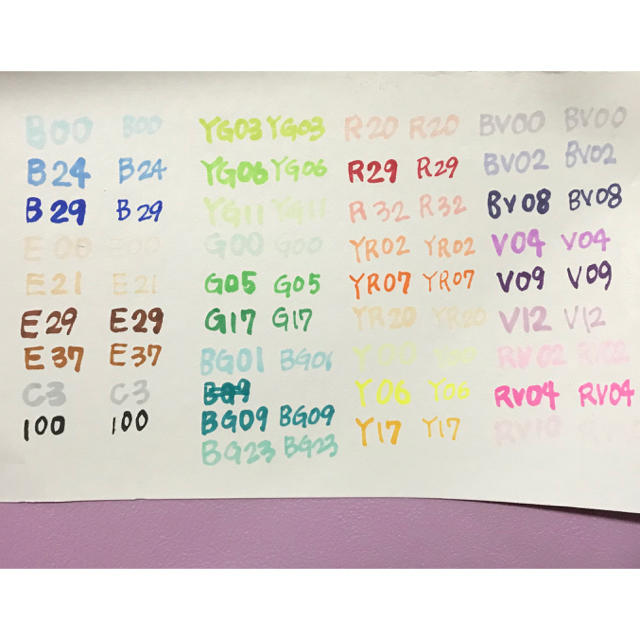 B00 B00
B24 B24
B29 B29
E00 E00
E21 E21
E29 E29
E37 E37
C3 C3
100 100
YG03 YG03
YG06 YG06
YG11 YG11
G00 G00
G05 G05
G17 G17
BG01
BG09 BG09
BG23 BG23
R20 R20
R29 R29
R32 R32
YR02 YR02
YR07 YR07
YR20 YR20
Y00 Y00
Y06 Y06
Y17 Y17
BV00 BV00
BV02 BV02
BV08 BV08
V04 V04
V09 V09
V12 V12
RV02 RV02
RV04 RV04
RV10